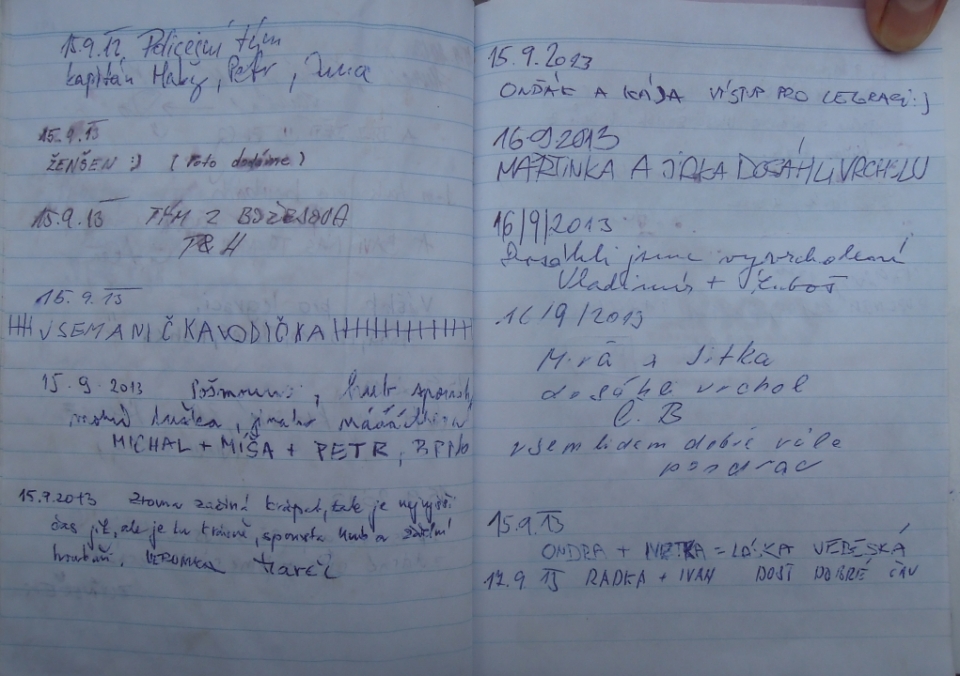 15.9.13, Policejní tým
kapitán Malý, Petr,
15.9.13
ŽENŠEN :) (foto dodáme)
15.9.13 TÝM Z BOŽEJOVA
P&H
15.9.13
VŠEMANIČKAVODIČKA
15.9.2013
MICHAL + MÍŠA + PETR, BRNO
15.9.2013 Zrovna začíná krápat, tak je nejvyšší
čas jít, ale je tu krásně, spousta hub a
houbaři.
15.9.2013
ONDÁK A KÁJA VÍSTUP PRO LEGRACI :)
16.9.2013
MARTINKA A JIRKA DOSÁHLI VRCHOLU
16/9/2013
Dosáhli jsme vyvrcholení
Vladimír + Luboš
16/9/2013
Míra a Jitka
dosáhli vrchol
Č.B
všem lidem dobré vůle
pozdrav
15.9.13
ONDRA + = LÁSKA VEDESKÁ
17.9.13 RADKA + IVAN DOST DOBRÉ ČAU